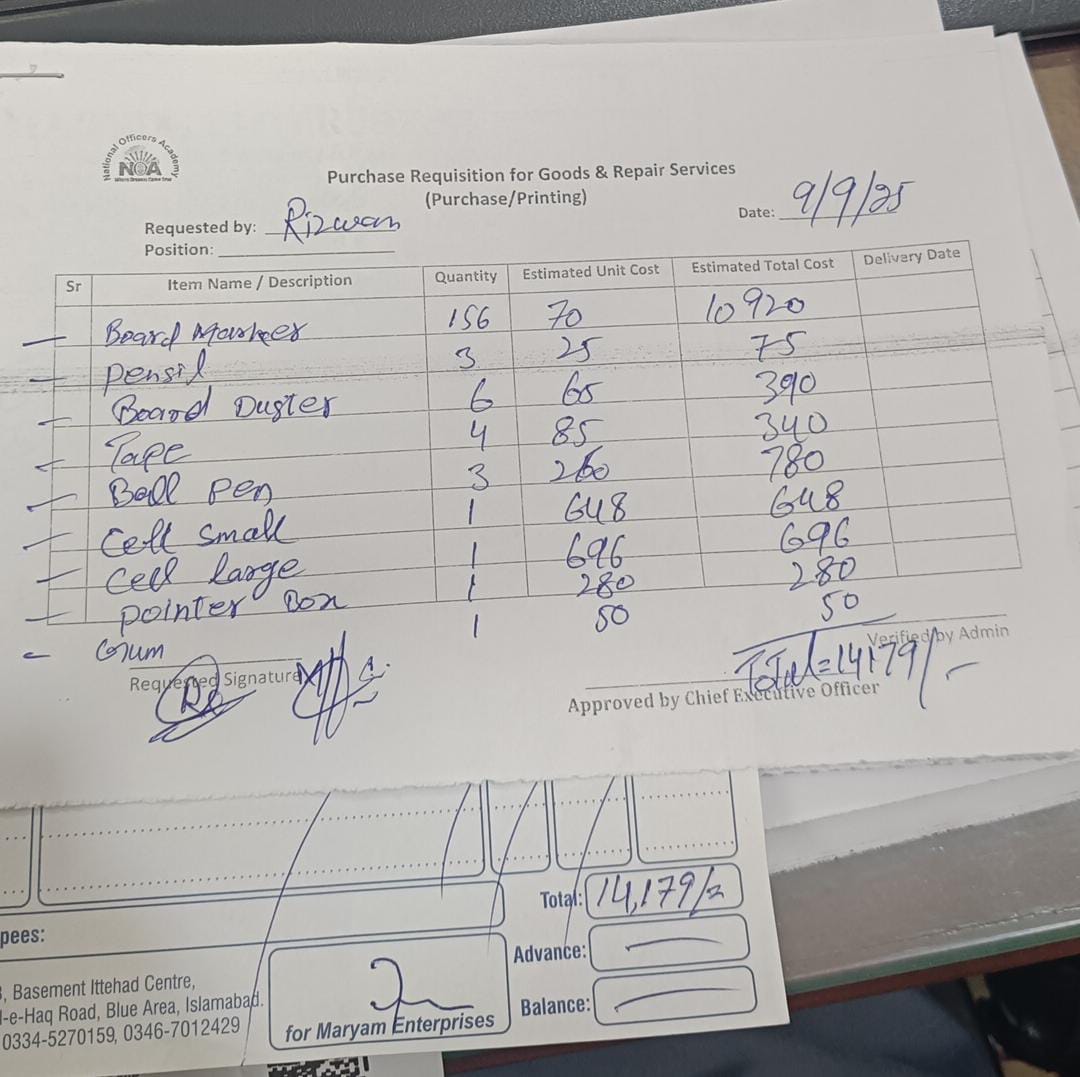 National Officers Academy
NOA
Where Dreams Come True
Purchase Requisition for Goods & Repair Services
(Purchase/Printing)
Requested by: Rizwan
Date: 9/9/25
Position:
Sr Item Name / Description Quantity Estimated Unit Cost Estimated Total Cost Delivery Date
Board Marker 156 70 10920
Pensil 3 25 75
Board Duster 6 65 390
Tape 4 85 340
Ball pen 3 260 780
Cell small 1 648 648
Cell large 1 696 696
pointer Box 1 280 280
Gum 1 50 50
Verified by Admin
Total=14179/-
Requested Signature
Approved by Chief Executive Officer
Total: 14,179/-
pees:
Advance:
Balance:
, Basement Ittehad Centre,
l-e-Haq Road, Blue Area, Islamabad.
0334-5270159, 0346-7012429
for Maryam Enterprises